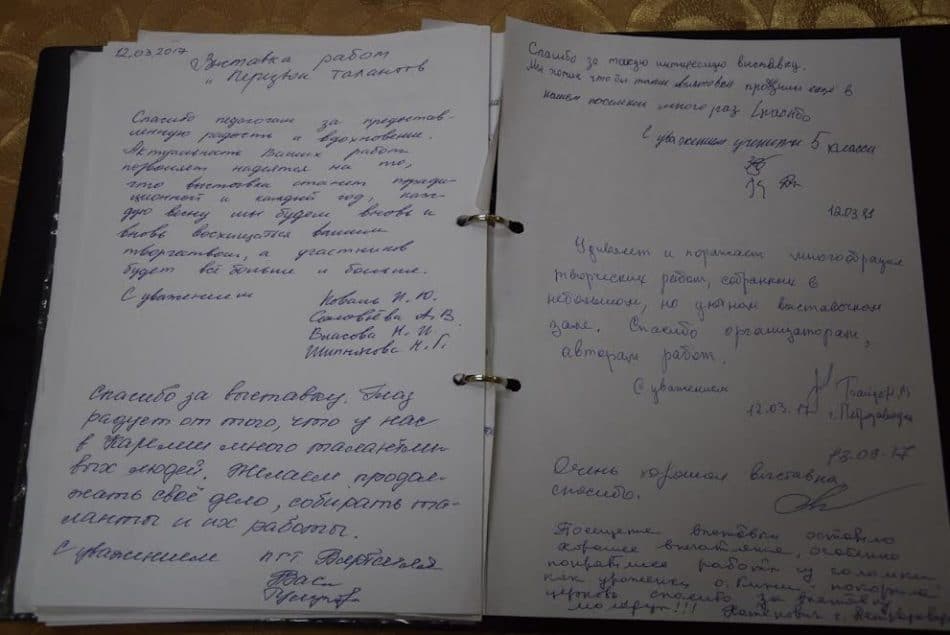 12.03.2017
Выставка работ
" Перезвон талантов
Спасибо педагогам за предостав-
ленную радость и вдохновение.
Актуальность Ваших работ
позволяет надеятся на то,
что выставка станет
ционной и каждый год, каж-
дую весну мы будем вновь и
вновь восхищаться вашим
творчеством, а участников
будет всё больше и больше.
С уважением
Коваль Н. Ю.
Соловьёва А. В.
Власова Н. И.
Н. Г.
Спасибо за выставку. Глаз
радует от того, что у нас
в Карелии много талантли-
вых людей. Желаем продол-
жать своё дело, собирать та-
ланты и их работы.
С уважением пгт Вяртсиля
Спасибо за такую интересную выставку.
Мы хотим чтобы такие выставки прошли еще в
нашем поселке много раз Спасибо
С уважением ученицы 5 класса
12.03
Удивляет и поражает многообразие
творческих работ, собранных в
небольшом, но уютном выставочном
зале. Спасибо организаторам,
авторам работ.
С уважением
12.03.17 г. Петрозаводск
13.03.17
Очень хорошая выставка
спасибо.
Посещение выставки оставило
хорошее впечатление, особенно
понравились работы из соломки,
как уроженки о. Кижи
церковь спасибо за выставку
г. Петрозаводск